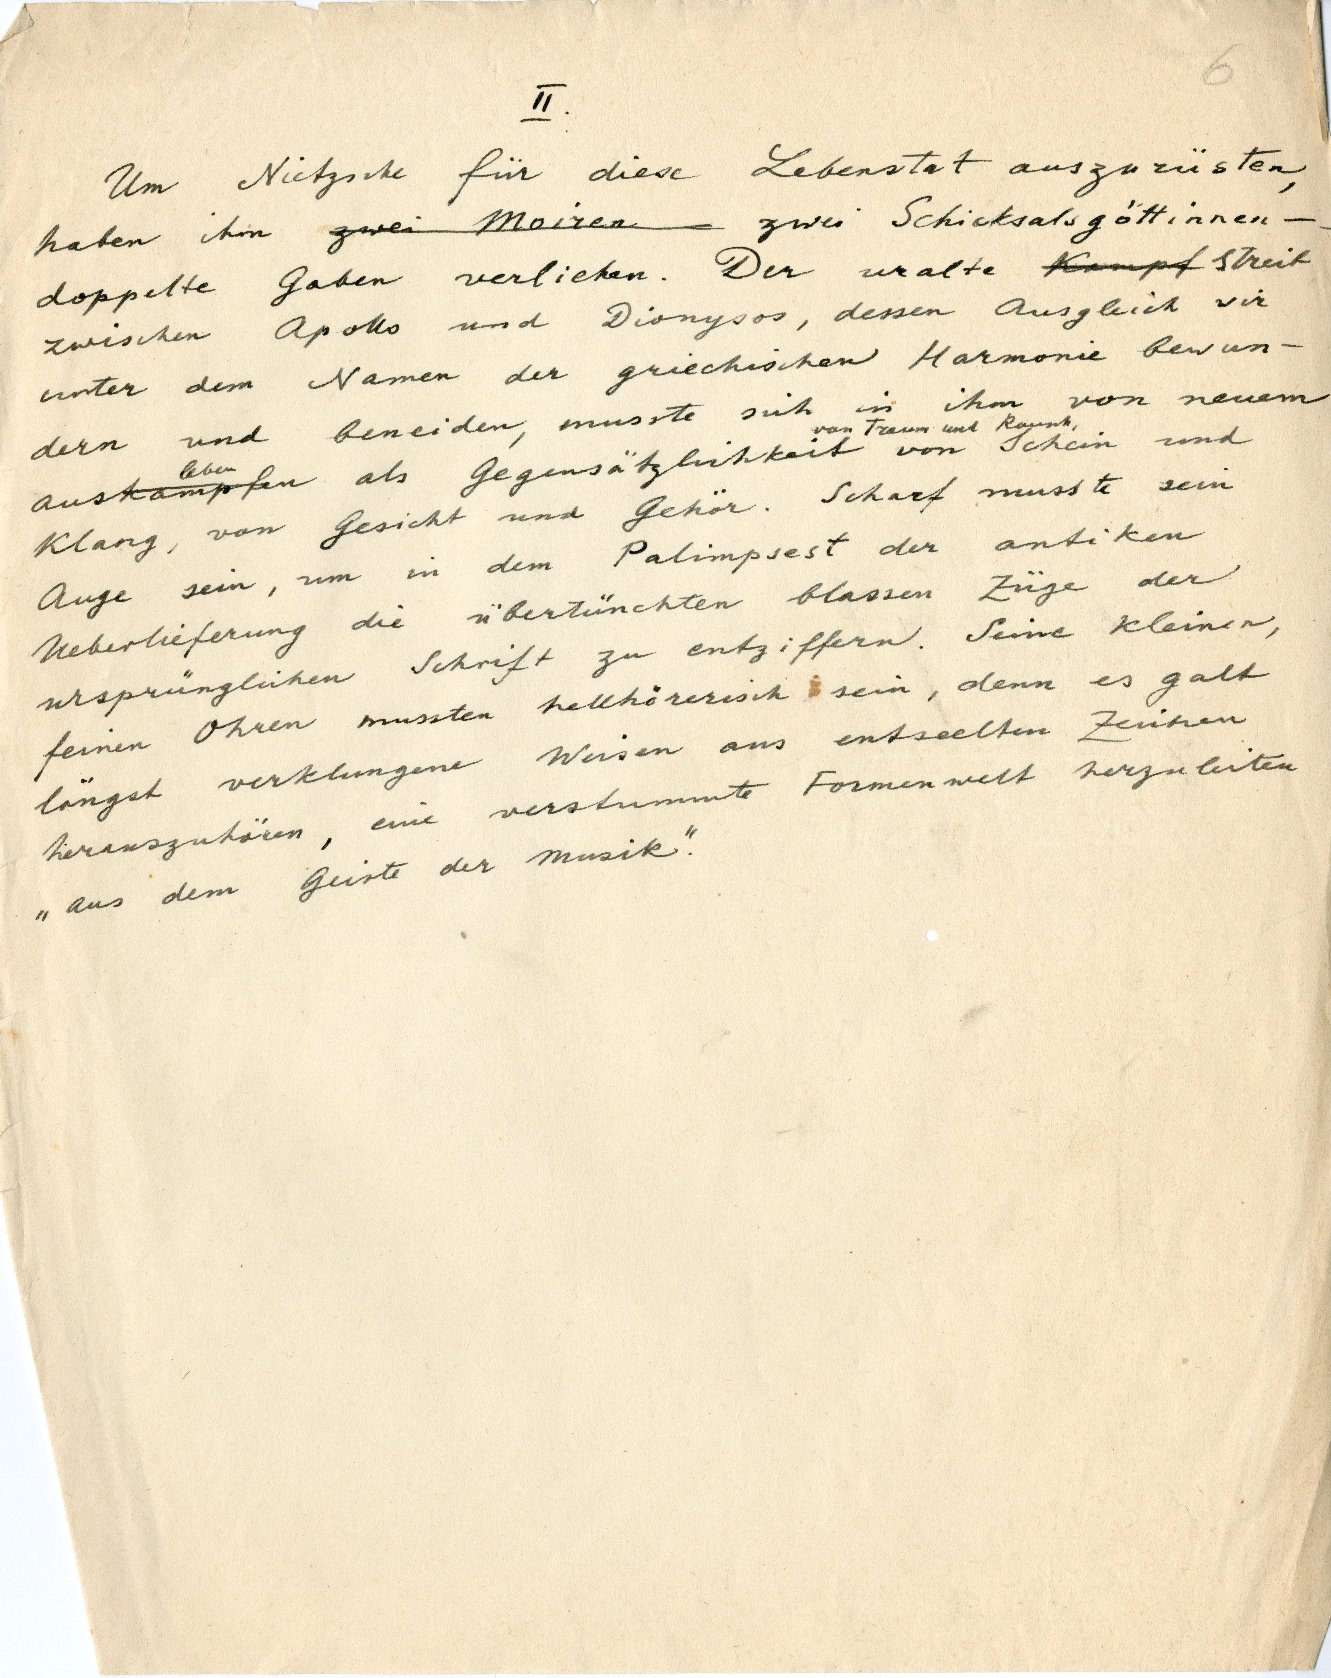 6
II.
Um Nietzsche für diese Lebenstat auszurüsten,
haben ihm zwei Moiren — zwei Schicksalsgöttinnen —
doppelte Gaben verliehen. Der uralte Kampf Streit
zwischen Apollo und Dionysos, dessen Ausgleich wir
unter dem Namen der griechischen Harmonie bewun-
dern und beneiden, musste sich in ihm von neuem
von Traum und Rausch,
leben
auskämpfen als Gegensätzlichkeit von Schein und
Klang, von Gesicht und Gehör. Scharf musste sein
Auge sein, um in dem Palimpsest der antiken
Ueberlieferung die übertünchten blassen Züge der
ursprünglichen Schrift zu entziffern. Seine kleinen,
feinen Ohren mussten hellhörerisch sein, denn es galt
längst verklungene Weisen aus entseelten Zeichen
herauszuhören, eine verstummte Formenwelt herzuleiten
„aus dem Geiste der Musik".